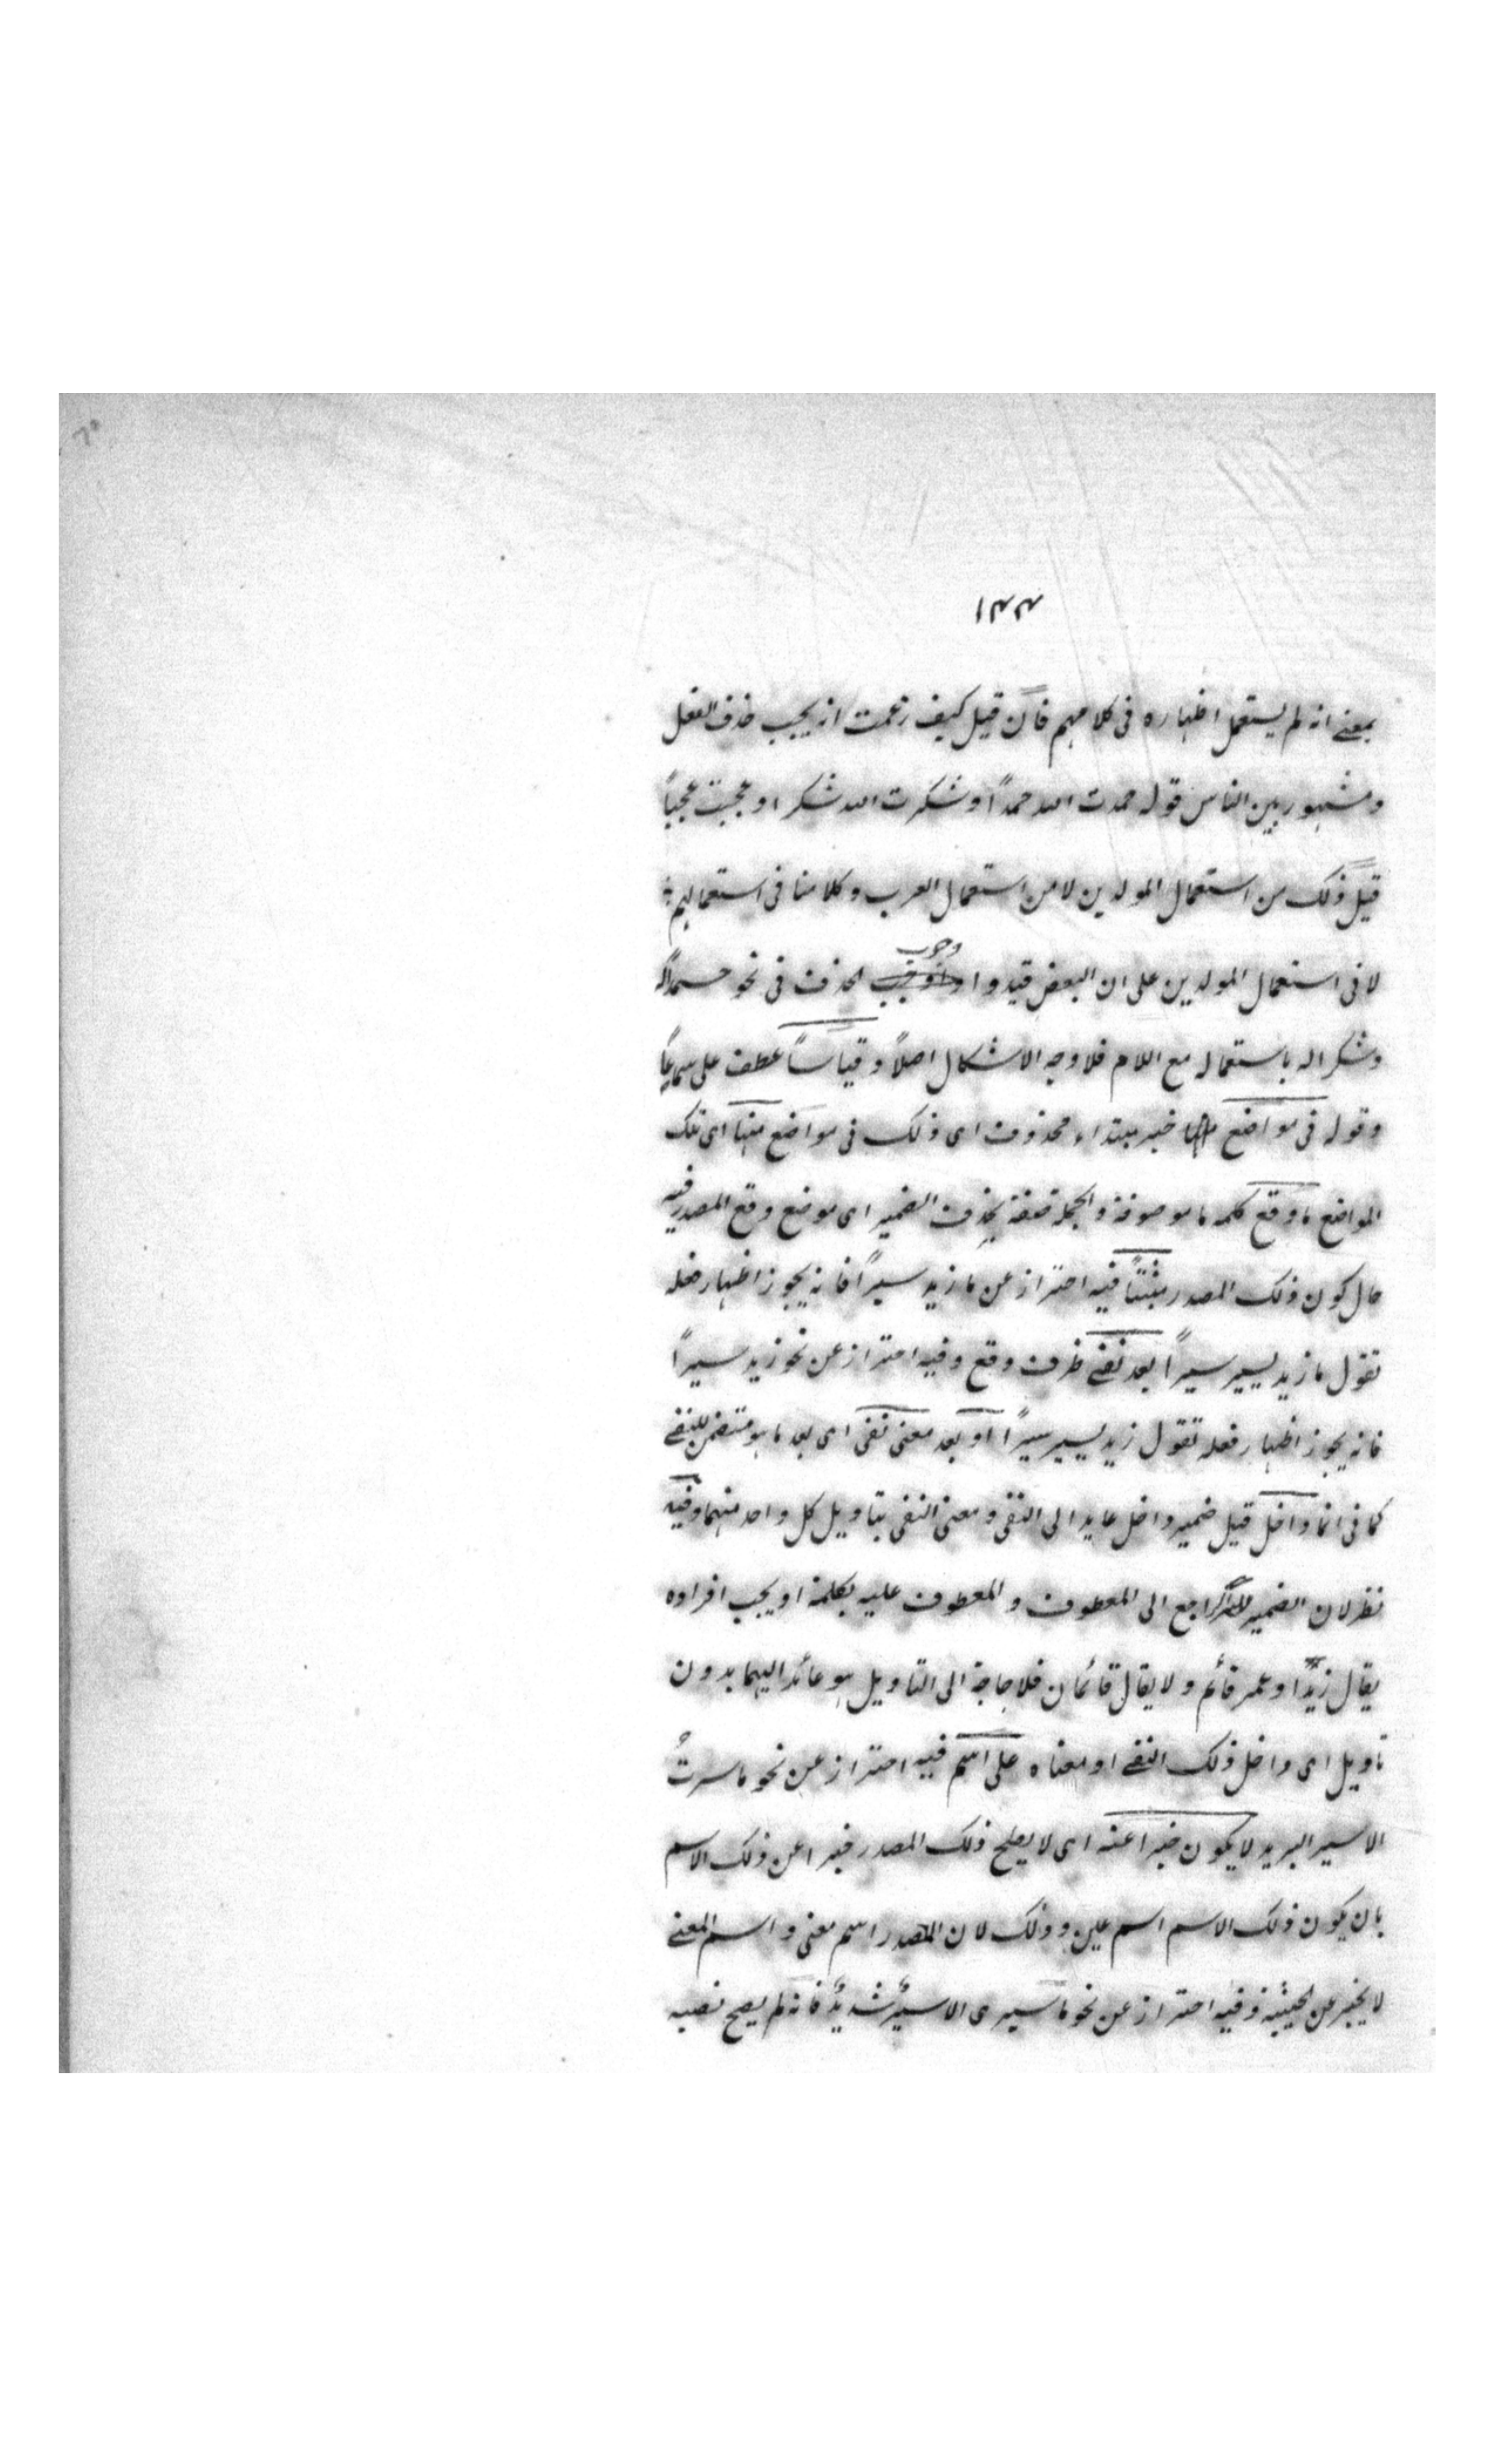 ١٣٣
بمعنے انه لم يستعمل اظهاره فى كلامهم فان قيل كيف زعمت انه يجب حذف الفعل
ومشهور بين الناس قوله حمدت الله حمدًا وشكرت الله شكرا وعجبت عجبًا
قيل ذلك من استعمال المولدين لا من استعمال العرب وكلامنا فى استعمالهم
لا فى استعمال المولدين على ان البعض قيدوا وجوب الحذف فى نحو حمدًا له
وشكرا له باستعماله مع اللام فلا وجه الاشكال اصلاً وقياسًا عطف على سماعًا
وقوله فى مواضع خبر مبتداء محذوف اى ذلك فى مواضع منها اى تلك
المواضع ما وقع كلمه ما موصوفة والجملة صفة بحذف الضمير اى موضع وقع المصدر فيه
حال كون ذلك المصدر مثبتًا فيه احتراز عن ما زيد سيرًا فانه يجوز اظهار فعله
تقول ما زيد يسير سيرًا بعد نفے ظرف وقع وفيه احتراز عن نحو زيد سيرًا
فانه يجوز اظهار فعله تقول زيد يسير سيرًا او بعد معنى نفى اى بعد ما هو متضمن للنفے
كما فى انما داخل قيل ضمير داخل عايد الى النفى ومعنى النفى بتاويل كل واحد منهما وفيه
نظر لان الضمير الراجع الى المعطوف والمعطوف عليه بكلمة او يجب افراده
يقال زيد او عمر قائم ولا يقال قائمان فلا حاجة الى التاويل هو عائد اليهما بدون
تاويل اى داخل ذلك النفے او معناه على اسم فيه احتراز عن نحو ما سرتُ
الا سير البريد لا يكون خبرا عنه اى لا يصلح ذلك المصدر خبرا عن ذلك الاسم
بان يكون ذلك الاسم اسم عين وذلك لان المصدر اسم معنى واسم المعنے
لا يخبر عن الجثة وفيه احتراز عن نحو ما سيرى الا سيرٌ شديدٌ فانه لم يصح نصبه